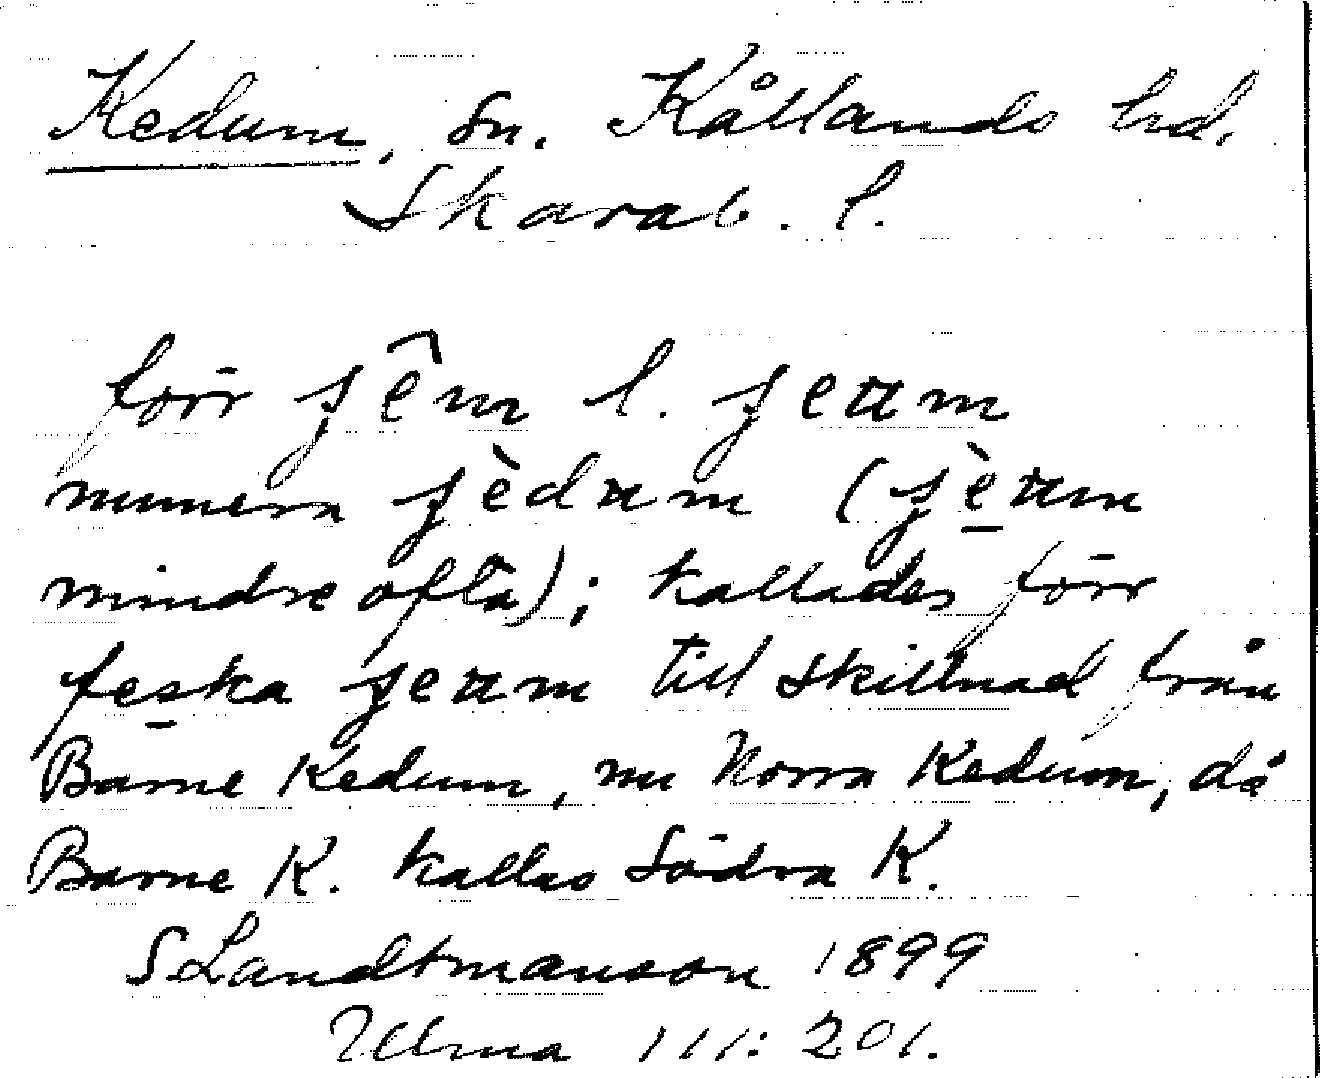 Kedum, sn. Kållands hd.
Skarab. l.
förr ʃêm l. ʃeam
numera ʃèdam (ʃèam
mindre ofta); kallades förr
feska ʃeam till skillnad från
Barne Kedum, nu Norra Kedum, då
Barne K. kallas Södra K.
S Landtmanson 1899
Ulma 111: 201.